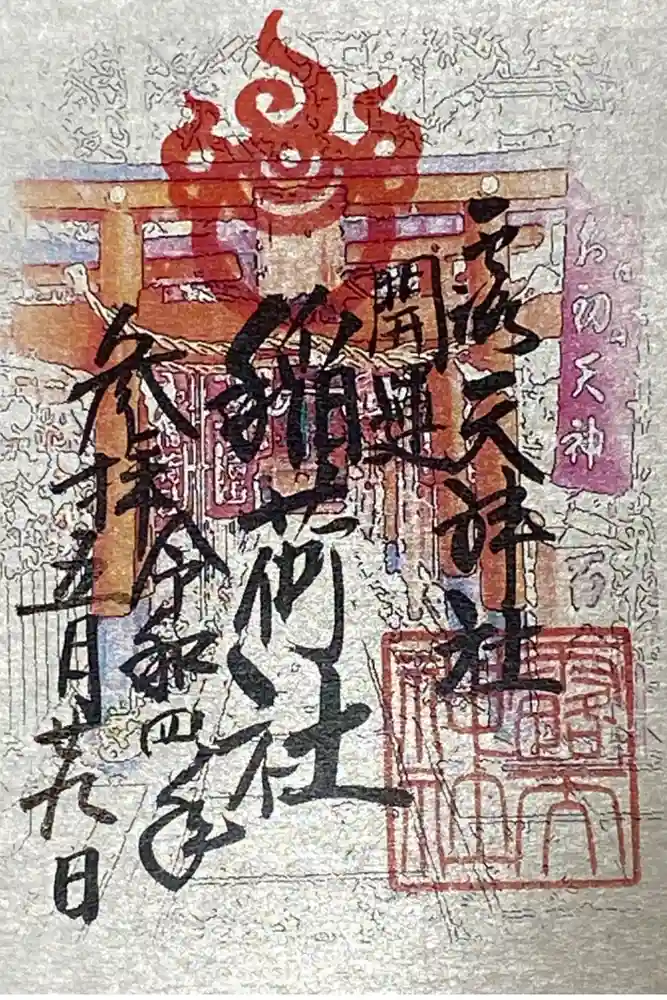 お初天神
露天神社
開運
稲荷社
参拝
令和四年
五月廿九日
露天神社